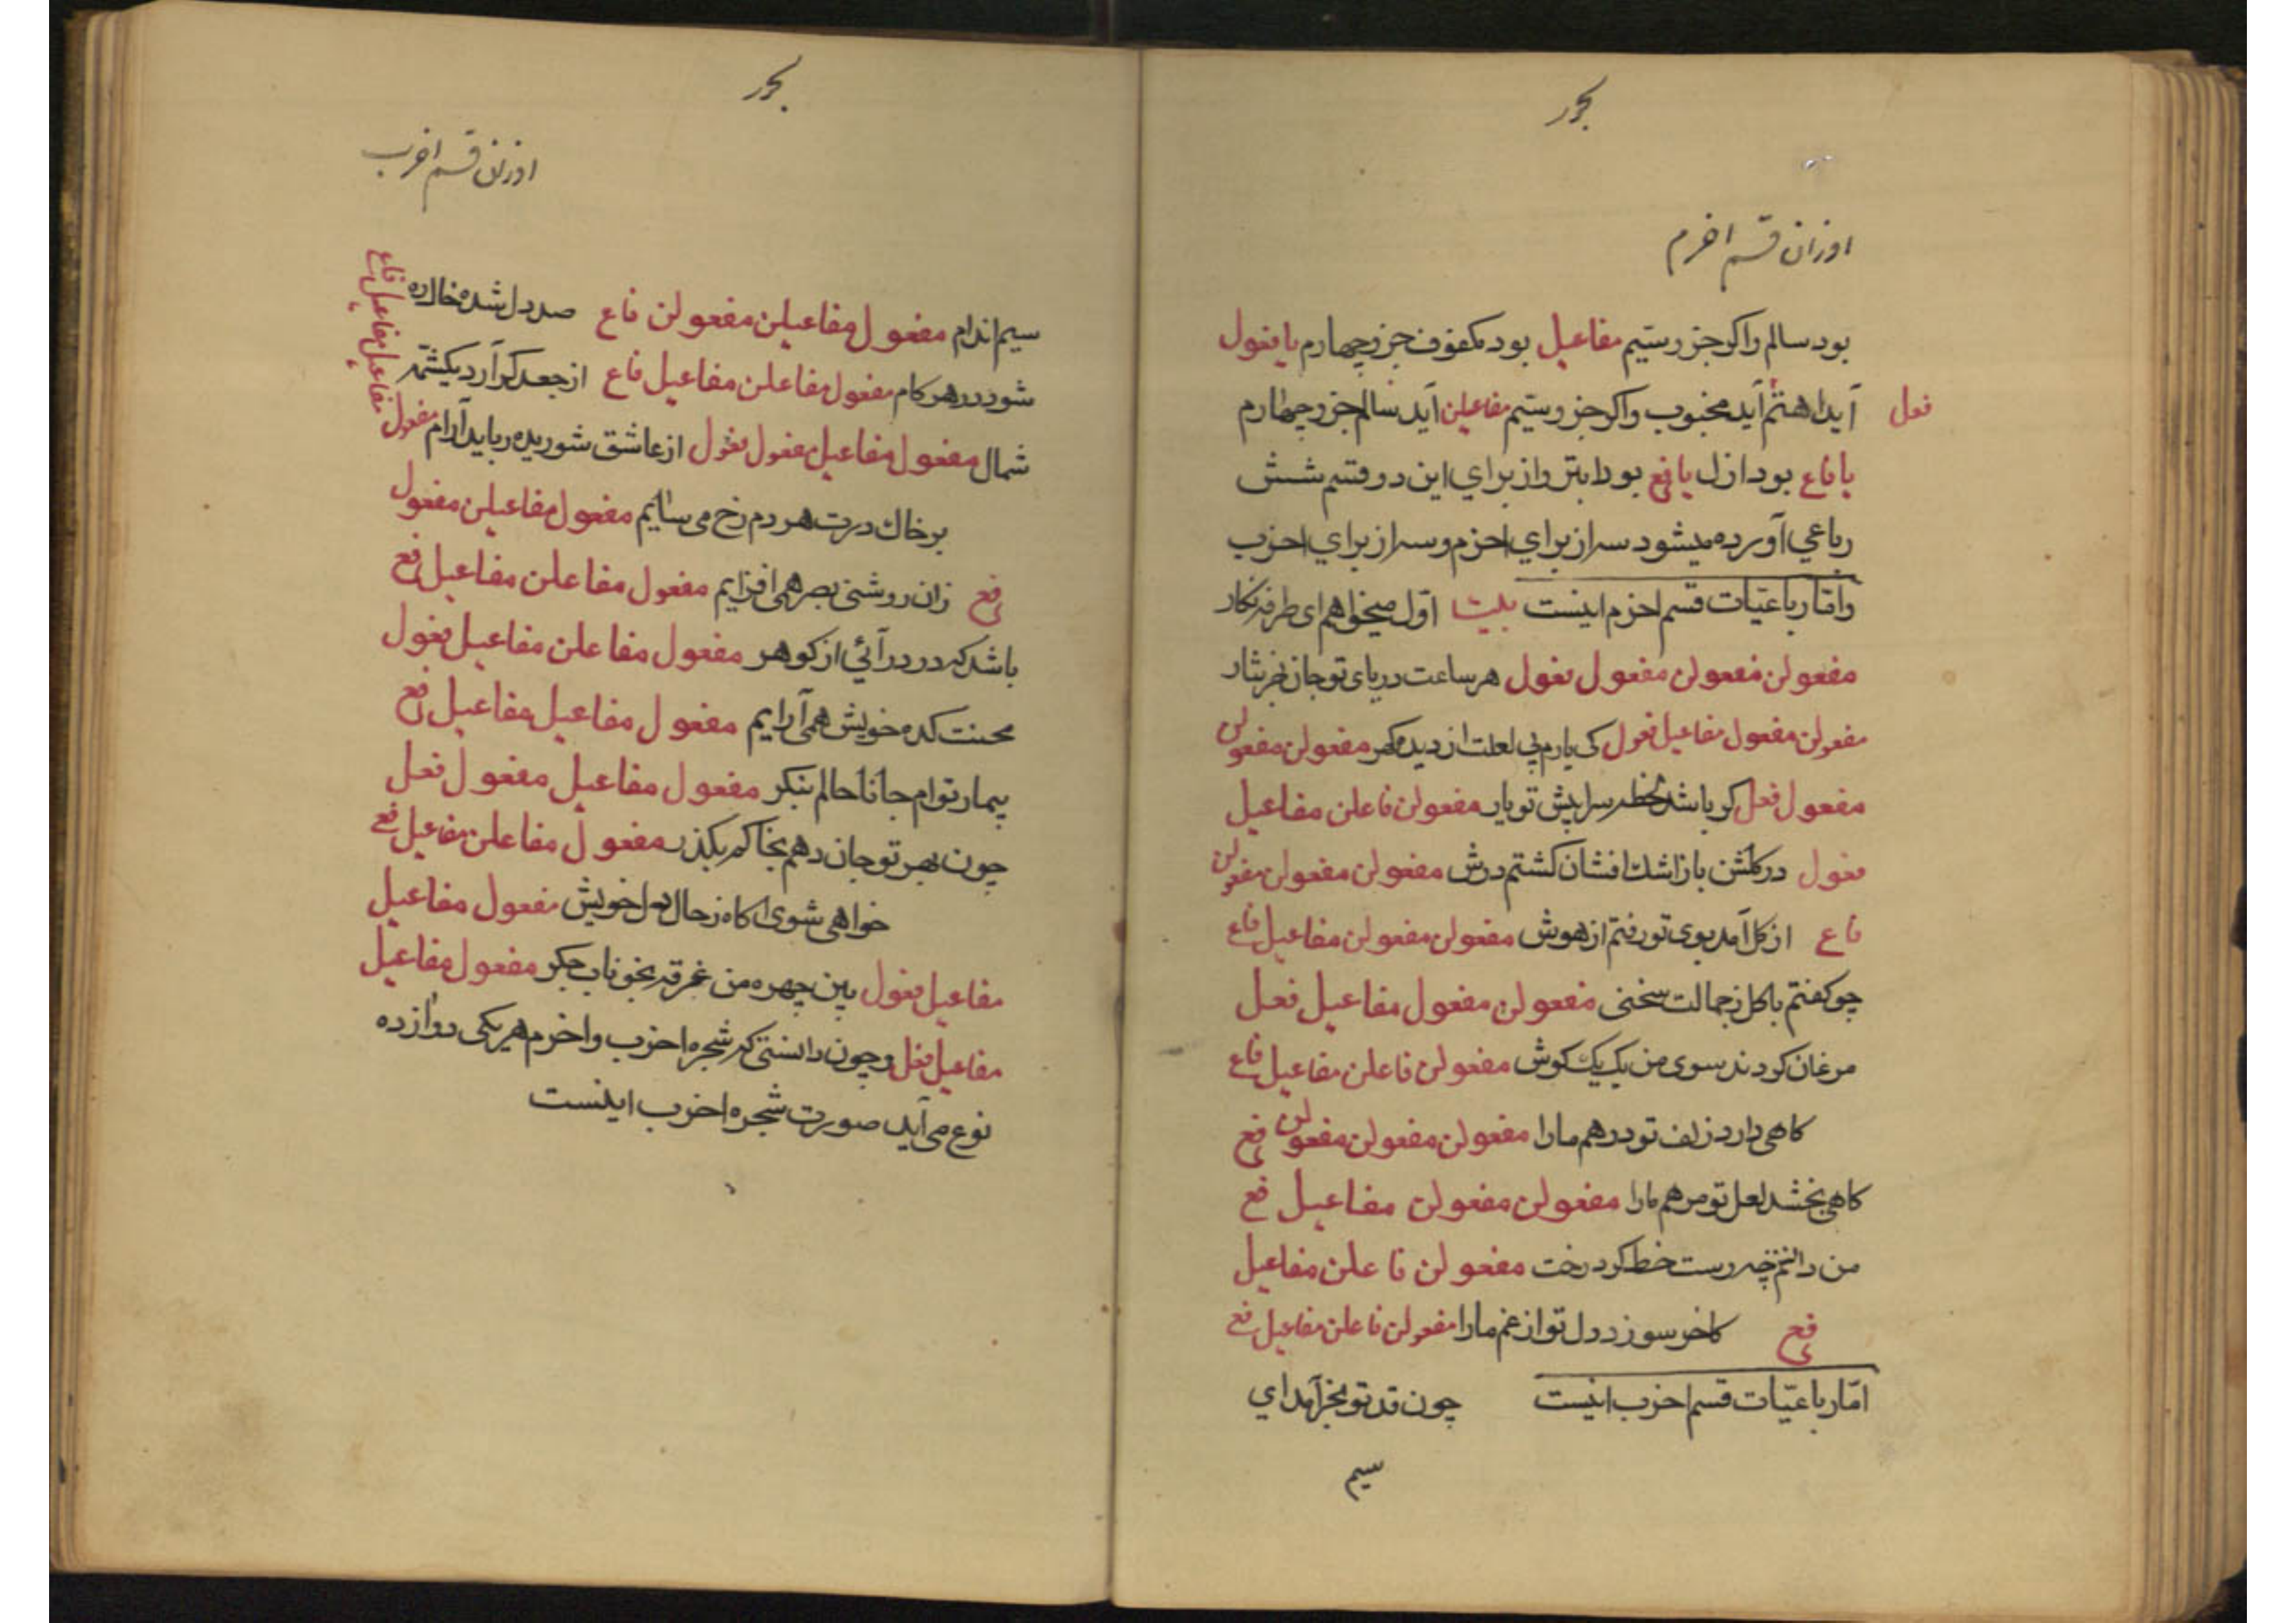 بحور
اوزان قسم اخرم
بود سالم واکر جزو سیّم مفاعیل بود مکفوف جزو چهارم یا فعول
آید اهتم آید مجبوب واکر جزو سیّم مفاعیلن آید سالم جزو چهارم
فعل
یا فاع بود ازل یا فع بود ابتر واز برای این دو قسم شش
رباعی آورده میشود سه از برای اخرم و سه از برای اخرب
وامّا رباعیّات قسم اخرم اینست بیت اوّل میخواهم ای طرفه نکار
مفعولن مفعولن مفعول فعول هر ساعت در پای تو جان نثار
مفعولن مفعول مفاعیل فعول کی یارم بی لعلت از دیده کهر مفعولن مفعولن
مفعول فعل کر باشد سر پیش تو یار مفعولن فاعلن مفاعیل
فعول در کلشن باز اشک افشان کشتم دوش مفعولن مفعولن مفعولن
فاع از کل آمد بوی تو رفتم از هوش مفعولن مفعولن مفاعیل فاع
چو کفتم با کل ز جمالت سخنی مفعولن مفعول مفاعیل فعل
مرغان کردند سوی من یک یک کوش مفعولن فاعلن مفاعیل فاع
کاهی دارد زلف تو درهم مارا مفعولن مفعولن مفعولن فع
کاهی بخشد لعل تو مرهم مارا مفعولن مفعولن مفاعیل فع
من دانم چه رست خط کرد رخت مفعولن فاعلن مفاعیل
فع کاخر سوزد دل تو از غم مارا مفعولن فاعلن مفاعیل فع
امّا رباعیّات قسم اخرب اینست چون قد تو بخرامد ای
سیم
بحور
اوزان قسم اخرب
سیم اندام مفعول مفاعیلن مفعولن فاع صد دل شده خاك ره
شود در هر کام مفعول مفاعلن مفاعیل فاع از جعد کر آرد یکشمّه
مفعول مفاعیل مفاعیل فاع
شمال مفعول مفاعیل مفعول فعول از عاشق شوریده رباید آرام
بر خاك درت هر دم رخ می سایم مفعول مفاعیلن مفعول
فع زان روشنی بصر همی افزایم مفعول مفاعلن مفاعیل فع
باشد که در در آئی از کوهر مفعول مفاعلن مفاعیل فعول
محنت کده خویش همی آرایم مفعول مفاعیل مفاعیل فع
بیمار توام جانا حالم بنکر مفعول مفاعیل مفعول فعل
چون بهر تو جان دهم بخاکم بکذر مفعول مفاعلن مفاعیل فع
خواهی شوی اکاه ز حال دل خویش مفعول مفاعیل
مفاعیل فعول بین چهره من غرقه بخوناب جکر مفعول مفاعیل
مفاعیل فعل وچون دانستی که شجره اخرب واخرم هر یکی دوازده
نوع می آید صورت شجره اخرب اینست